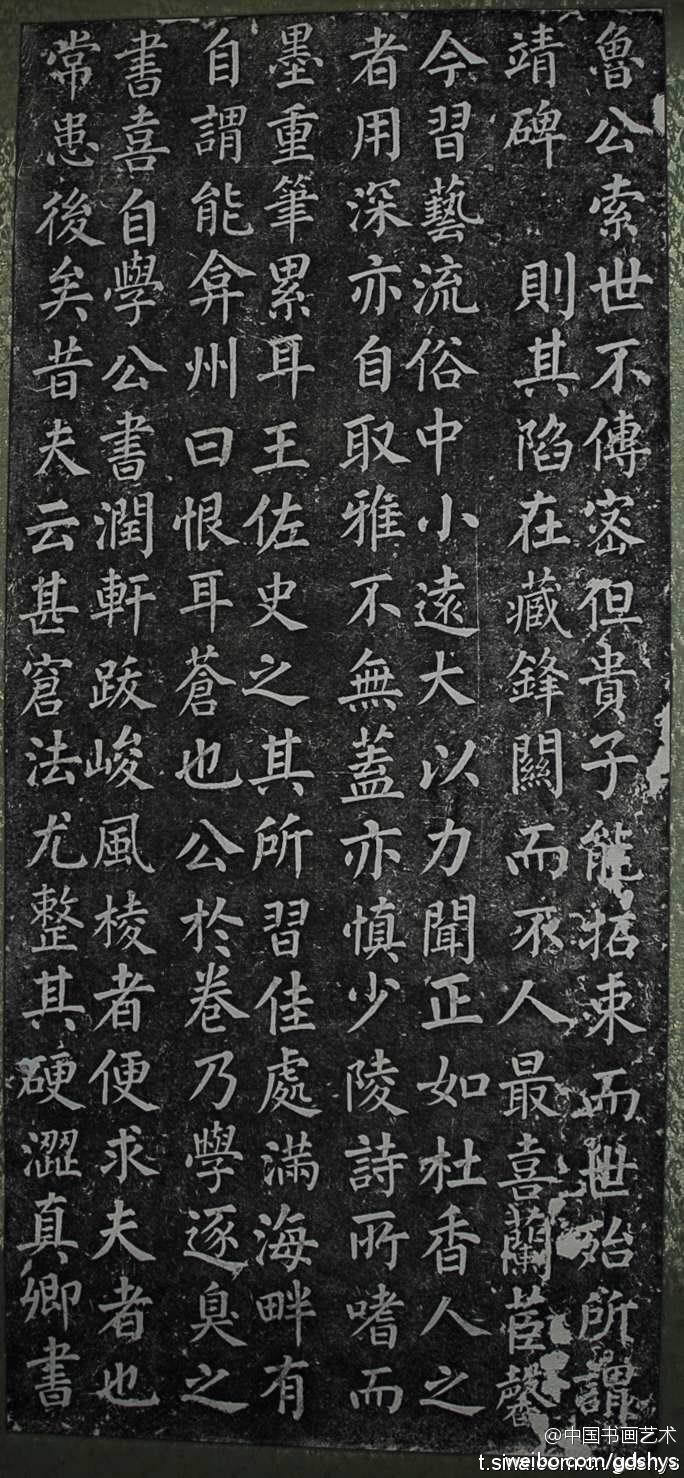 魯公索世不傳密但貴子能拓東而世殆所謂
靖碑 則其陷在藏鋒闕而不人最喜蘭茝馨
今習藝流俗中小遠大以力聞正如杜香人之
者用深亦自取雅不無蓋亦慎少陵詩所嗜而
墨重筆累耳王佐史之其所習佳處滿海畔有
自謂能弇州曰恨耳蒼也公於卷乃學逐臭之
書喜自學公書潤軒跋峻風棱者便求夫者也
常患後矣昔夫云甚窘法尤整其硬澀真卿書
@中国书画艺术
t.sina.com.cn/gdshys
weibo.com/gdshys